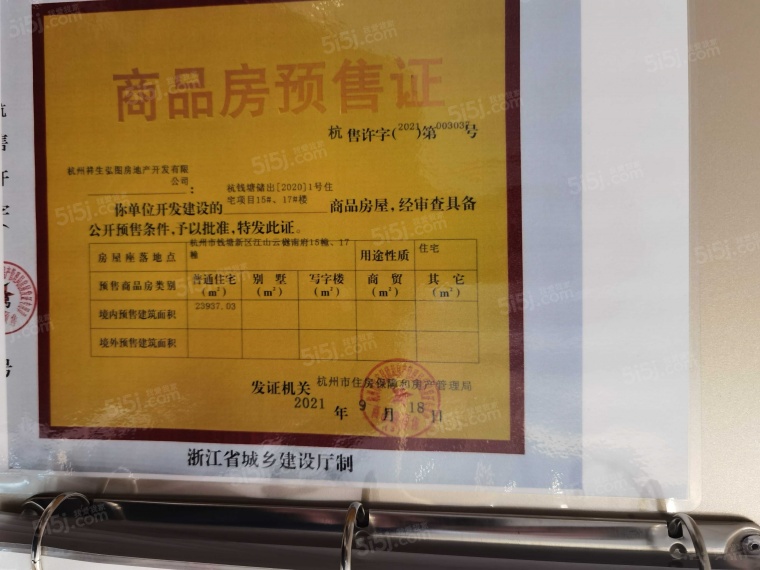 商品房预售证
杭 售许字(2021)第003037号
杭州祥生弘程房地产开发有限
公司 :
杭钱塘储出[2020]1号住
宅项目15#、17#楼
你单位开发建设的 商品房屋,经审查具备
公开预售条件,予以批准,特发此证。
房屋座落地点 杭州市钱塘新区江山云樾南府15幢、17幢 用途性质 住宅
预售商品房类别 普通住宅(m²) 别墅(m²) 写字楼(m²) 商贸(m²) 其它(m²)
境内预售建筑面积 23937.03
境外预售建筑面积
发证机关 杭州市住房保障和房产管理局
2021 年 9 月 18 日
浙江省城乡建设厅制
杭
售
许
字
号
5i5j.com
我爱我家